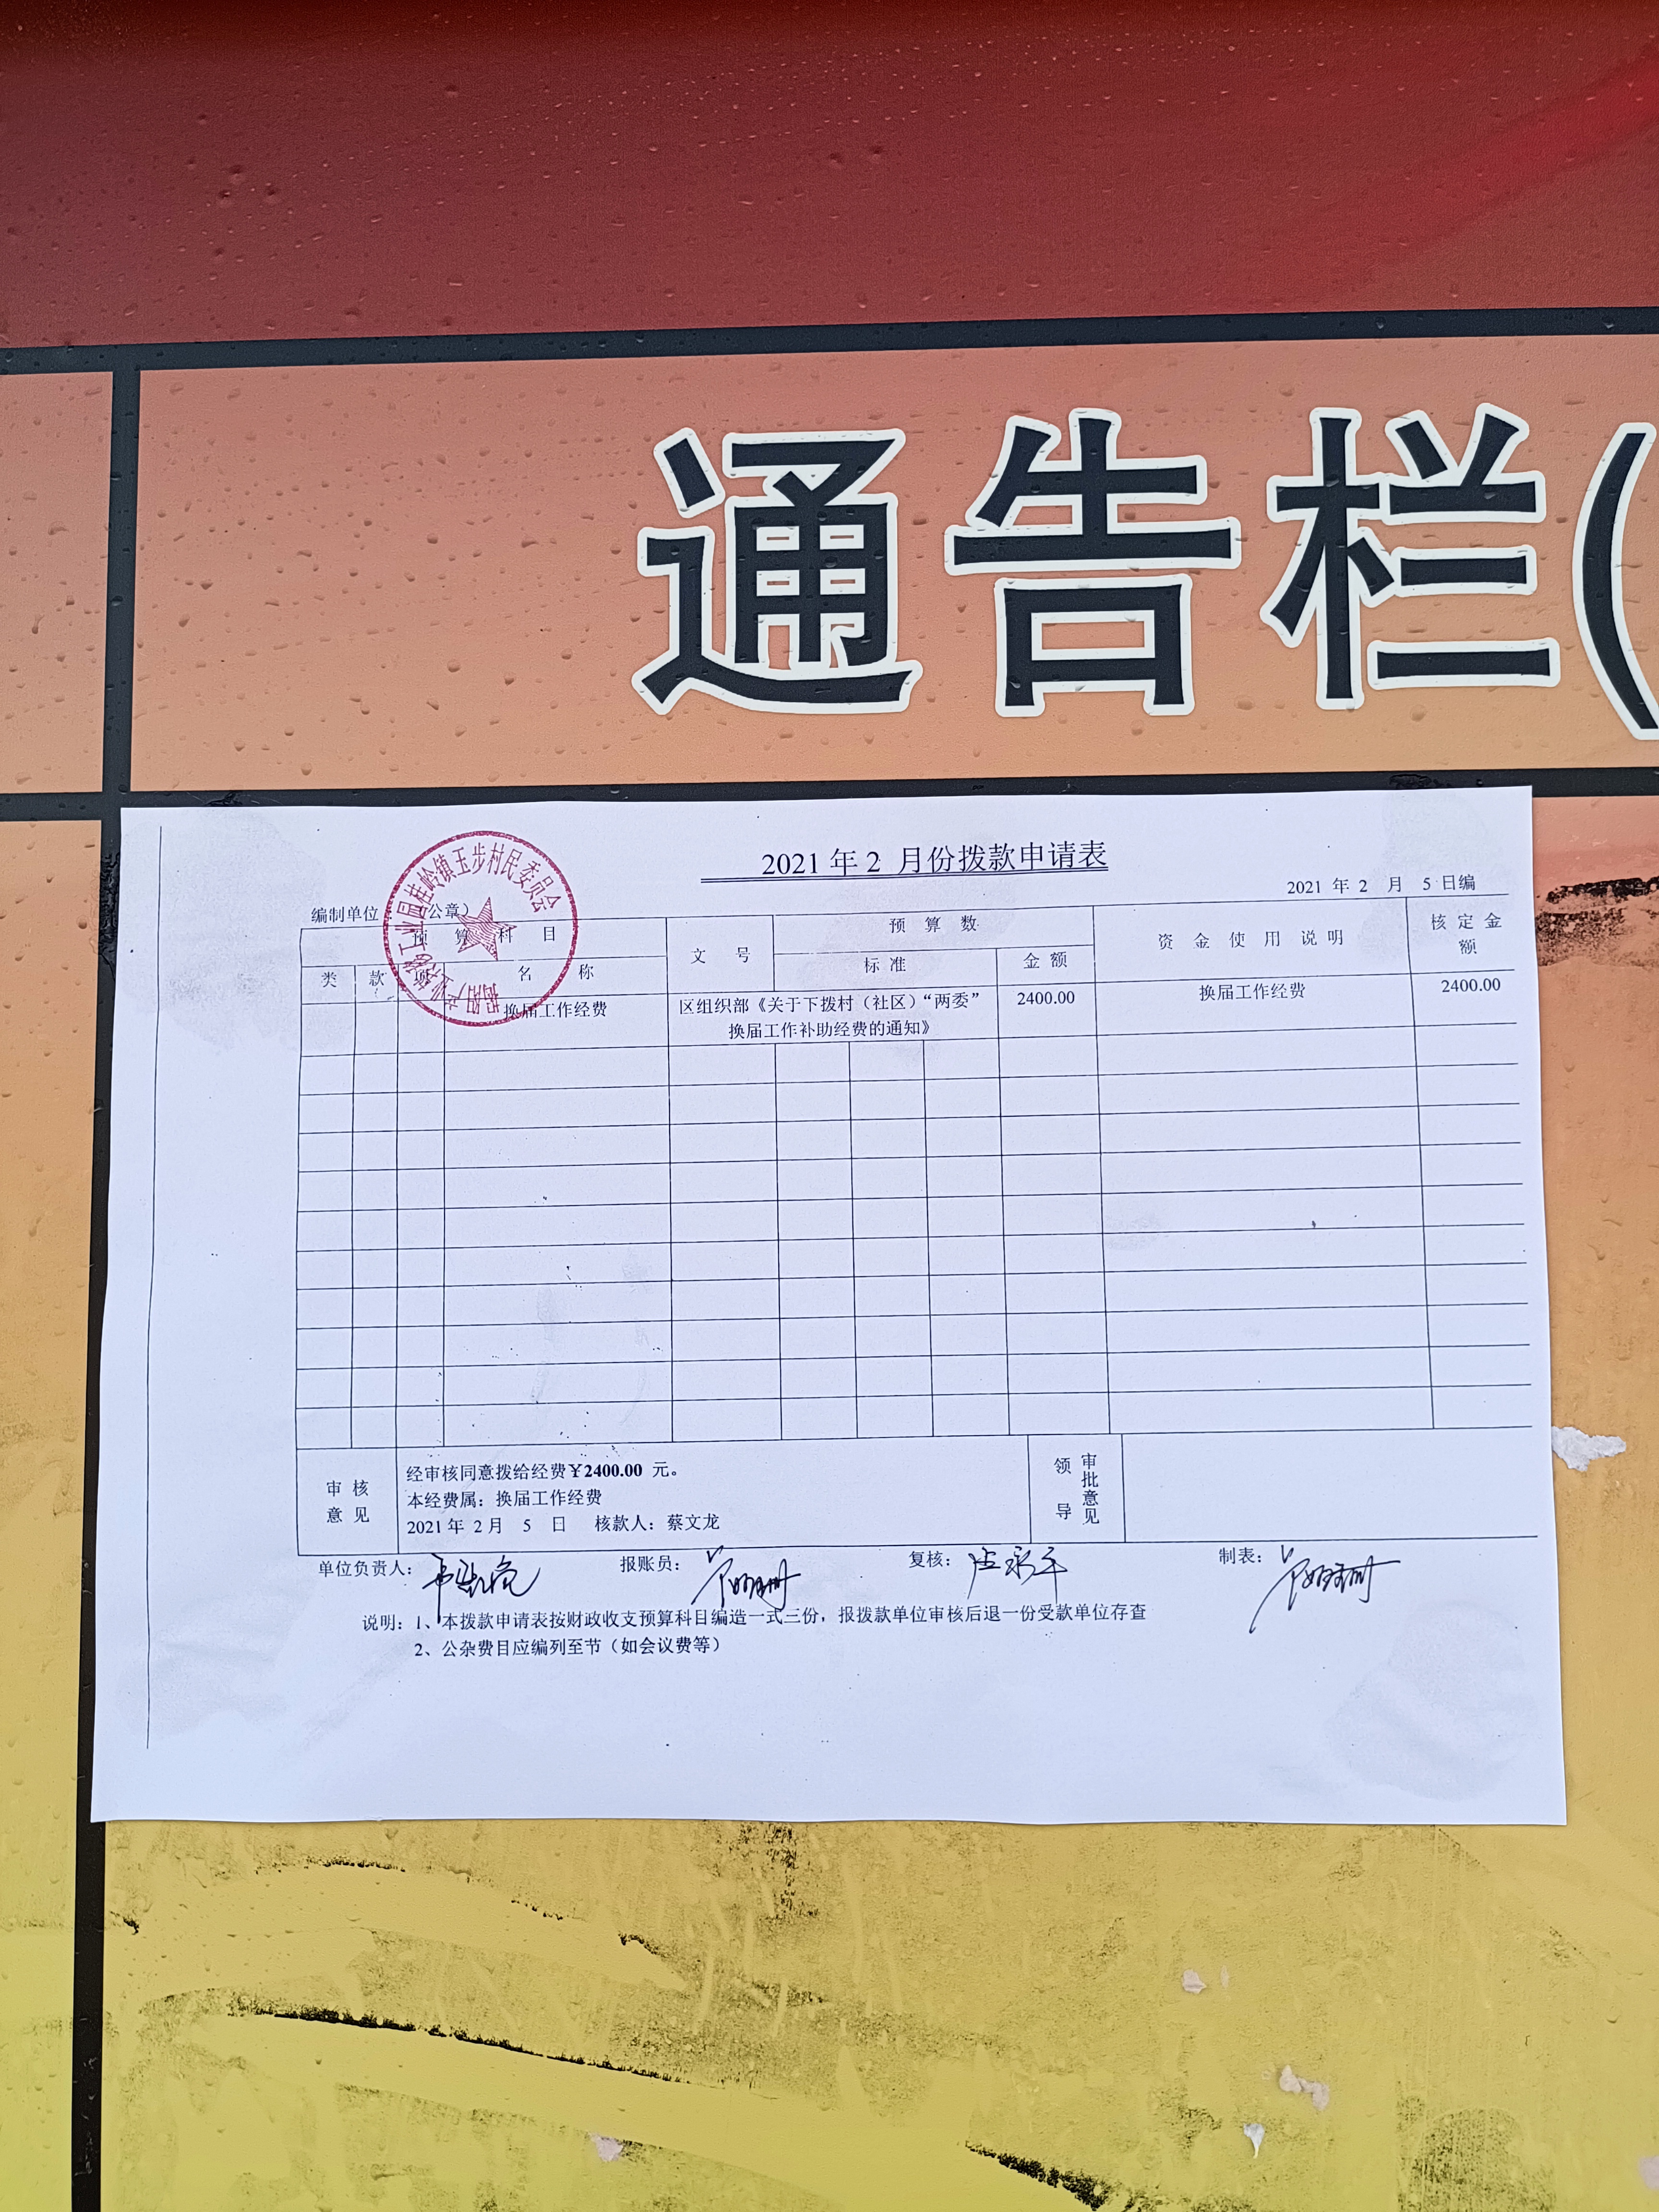 通告栏(
2021 年 2 月份拨款申请表
2021 年 2 月 5 日编
编制单位 公章)
揭阳产业转移工业园桂岭镇玉步村民委员会
预 算 科 目
文 号
预 算 数
资 金 使 用 说 明
核 定 金
额
类 款 项 名 称
标 准
金 额
换届工作经费
区组织部《关于下拨村（社区）“两委”
换届工作补助经费的通知》
2400.00
换届工作经费
2400.00
审 核
意 见
经审核同意拨给经费￥2400.00 元。
本经费属：换届工作经费
2021 年 2 月 5 日 核款人：蔡文龙
领 导
审批意见
单位负责人： 报账员： 复核： 制表：
说明：1、本拨款申请表按财政收支预算科目编造一式三份，报拨款单位审核后退一份受款单位存查
2、公杂费目应编列至节（如会议费等）